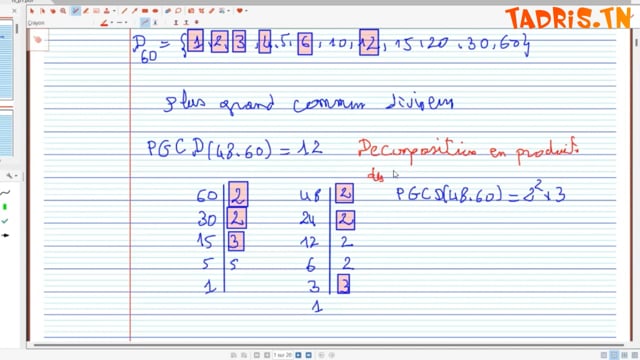 TADRIS.TN
D60 = {1, 2, 3, 4, 5, 6, 10, 12, 15, 20, 30, 60}
plus grand commun diviseur
PGCD(48.60) = 12
Decomposition en produit
des
PGCD(48.60) = 2² × 3
60 | 2
30 | 2
15 | 3
5 | 5
1 |
48 | 2
24 | 2
12 | 2
6 | 2
3 | 3
1